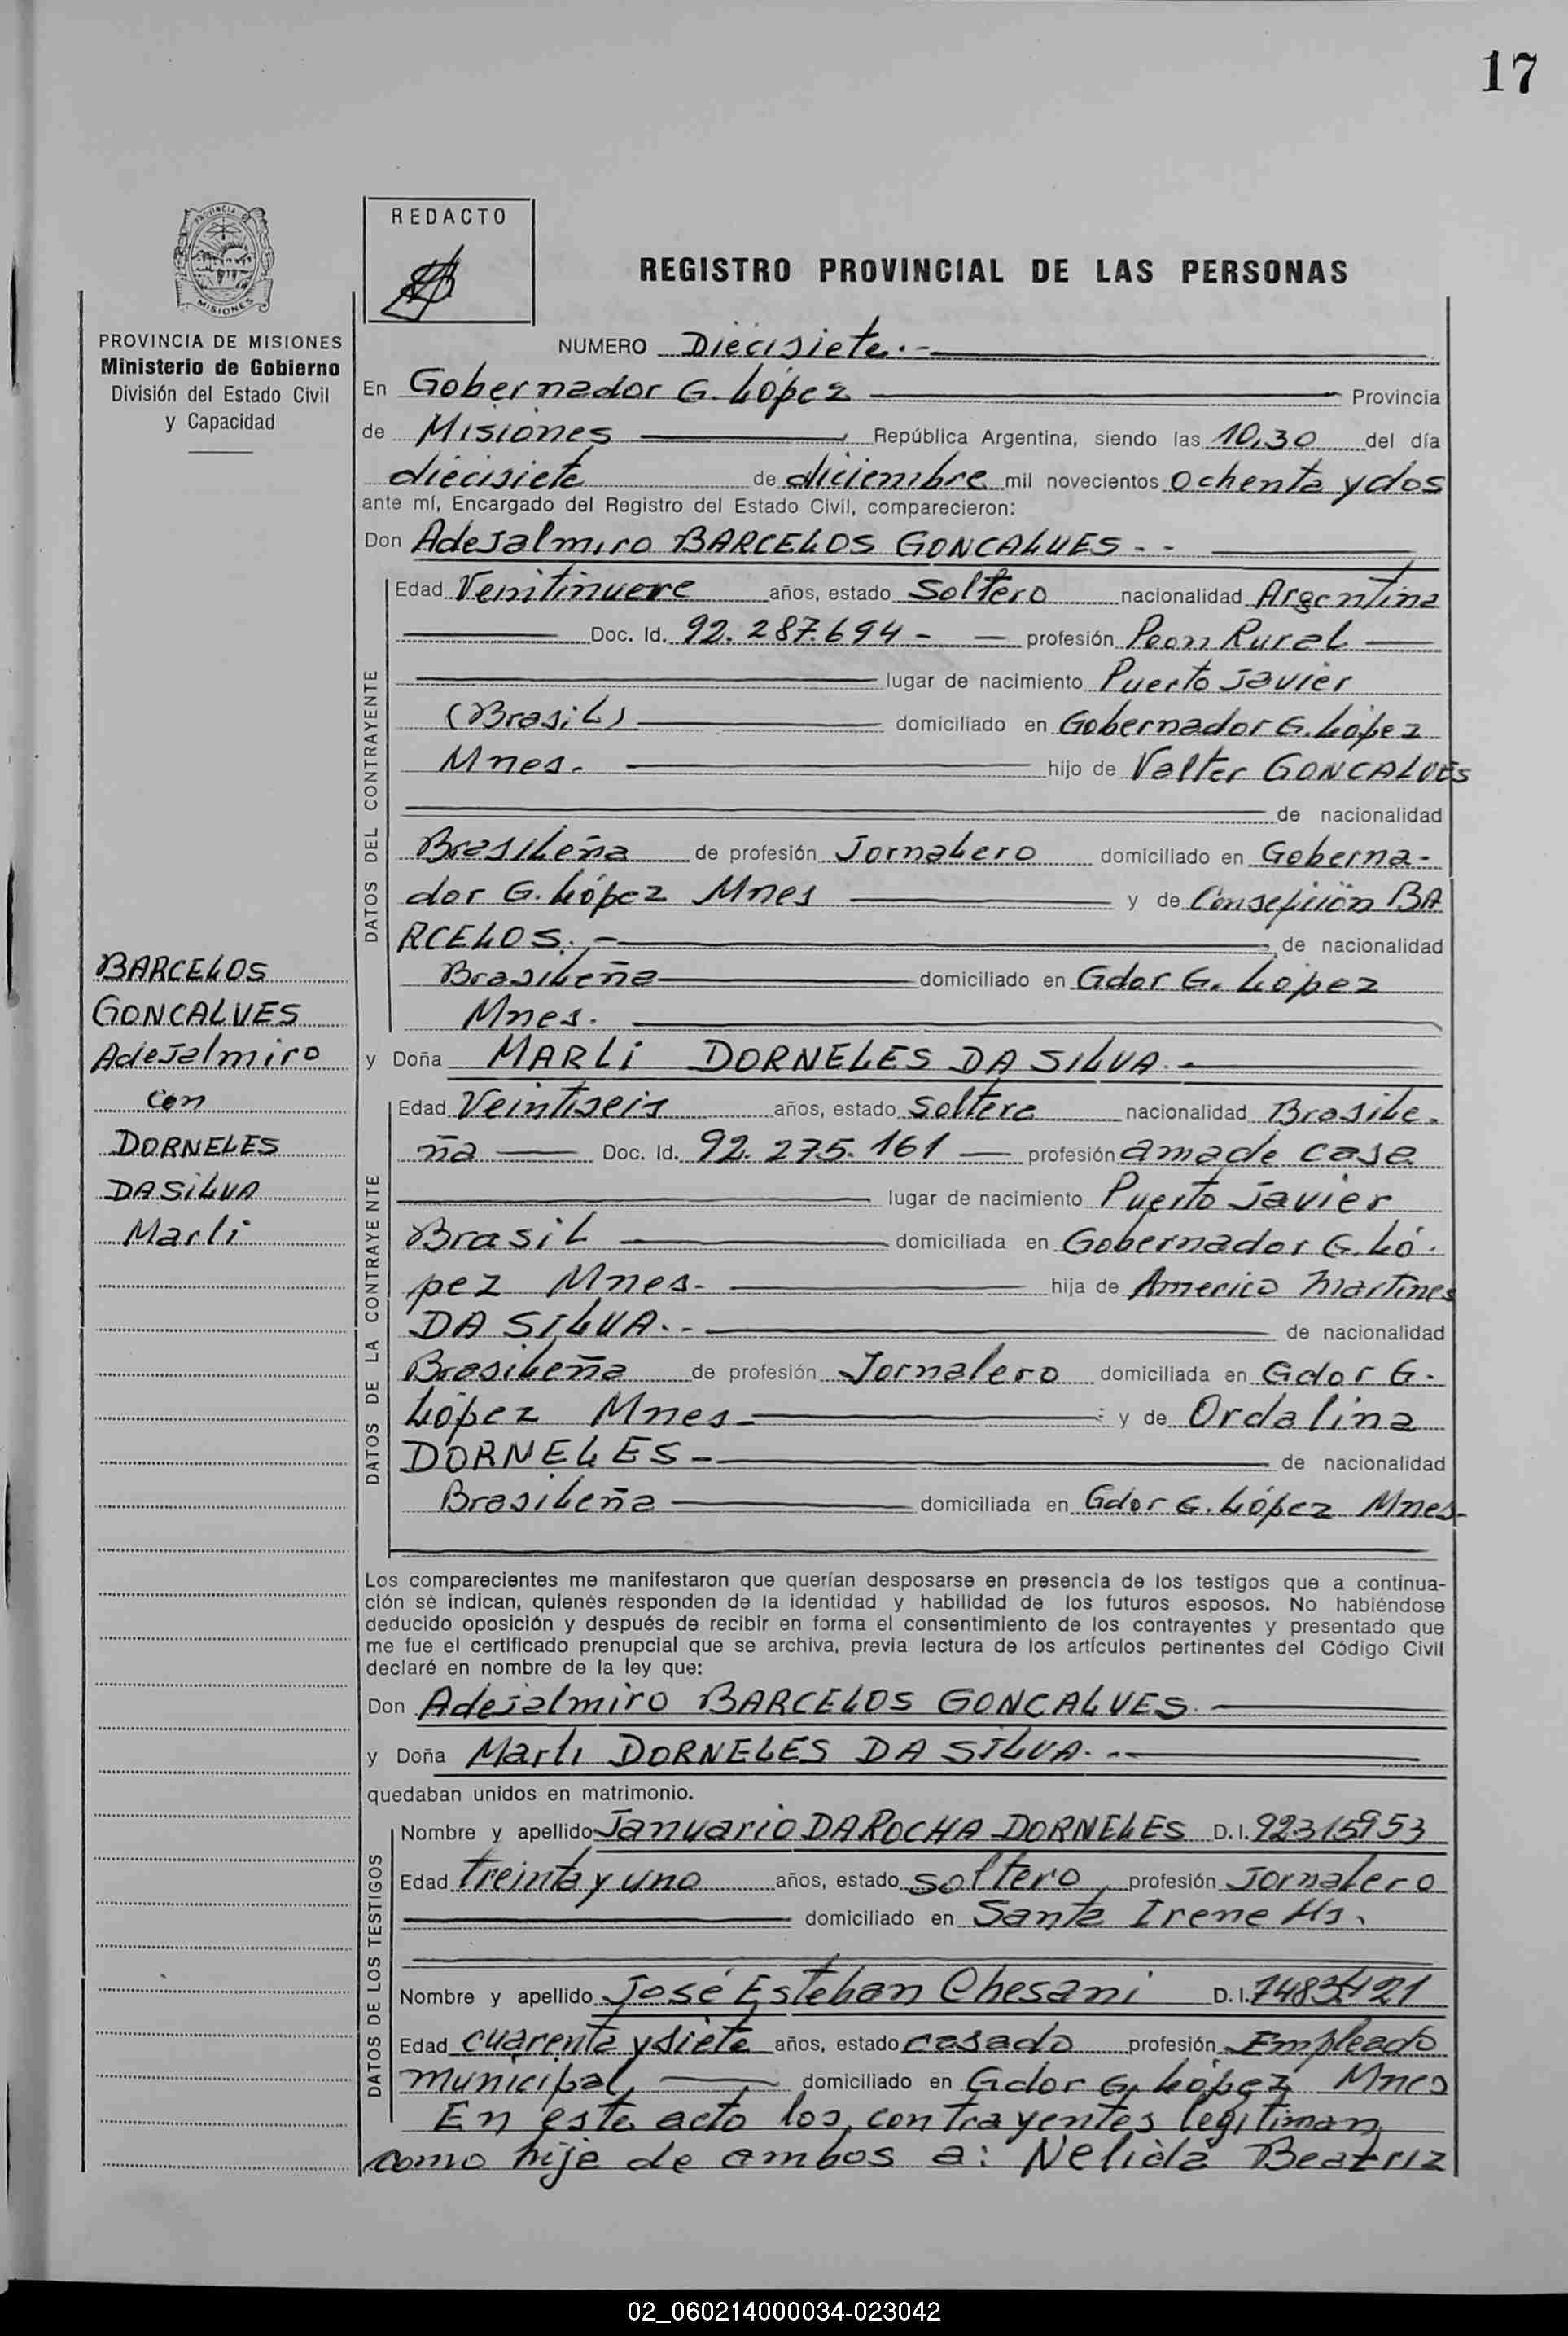 17
REDACTO
PROVINCIA DE
MISIONES
REGISTRO PROVINCIAL DE LAS PERSONAS
PROVINCIA DE MISIONES
Ministerio de Gobierno
División del Estado Civil
y Capacidad
NUMERO Diecisiete.-
En Gobernador G. López Provincia
de Misiones República Argentina, siendo las 10,30 del día
diecisiete de diciembre mil novecientos Ochenta y dos
ante mí, Encargado del Registro del Estado Civil, comparecieron:
Don AdeJalmiro BARCELOS GONCALVES - -
DATOS DEL CONTRAYENTE
Edad Venitinueve años, estado Soltero nacionalidad Argentina
Doc. Id. 92.287.694 - profesión Peon Rural
lugar de nacimiento Puerto Javier
(Brasil) domiciliado en Gobernador G. López
Mnes. hijo de Valter GONCALVES
de nacionalidad
Brasileña de profesión Jornalero domiciliado en Goberna-
dor G. López Mnes y de BA
RCELOS. - de nacionalidad
Brasileña domiciliado en Gdor G. López
Mnes.
BARCELOS
GONCALVES
AdeJalmiro
con
DORNELES
DA SILVA
Marli
y Doña MARLi DORNELES DA SILVA. -
DATOS DE LA CONTRAYENTE
Edad Veintiseis años, estado Soltera nacionalidad Brasile-
ña Doc. Id. 92.275.161 profesión ama de casa
lugar de nacimiento Puerto Javier
Brasil domiciliada en Gobernador G. Ló-
pez Mnes. hija de Americo Martines
DA SILVA. - de nacionalidad
Brasileña de profesión Jornalero domiciliada en Gdor G.
López Mnes y de Ordalina
DORNELES - de nacionalidad
Brasileña domiciliada en Gdor G. López Mnes-
Los comparecientes me manifestaron que querían desposarse en presencia de los testigos que a continua-
ción se indican, quienes responden de la identidad y habilidad de los futuros esposos. No habiéndose
deducido oposición y después de recibir en forma el consentimiento de los contrayentes y presentado que
me fue el certificado prenupcial que se archiva, previa lectura de los artículos pertinentes del Código Civil
declaré en nombre de la ley que:
Don AdeJalmiro BARCELOS GONCALVES.
y Doña Marli DORNELES DA SILVA. -
quedaban unidos en matrimonio.
DATOS DE LOS TESTIGOS
Nombre y apellido Januario DA ROCHA DORNELES D.I. 92315953
Edad treinta y uno años, estado soltero profesión Jornalero
domiciliado en Santa Irene Ms.
Nombre y apellido José Esteban Chesani D.I.
Edad cuarenta y siete años, estado casado profesión Empleado
municipal domiciliado en Gdor G. López Mnes
En este acto los contrayentes legitiman
como hija de ambos a: Nelida Beatriz
02_060214000034-023042